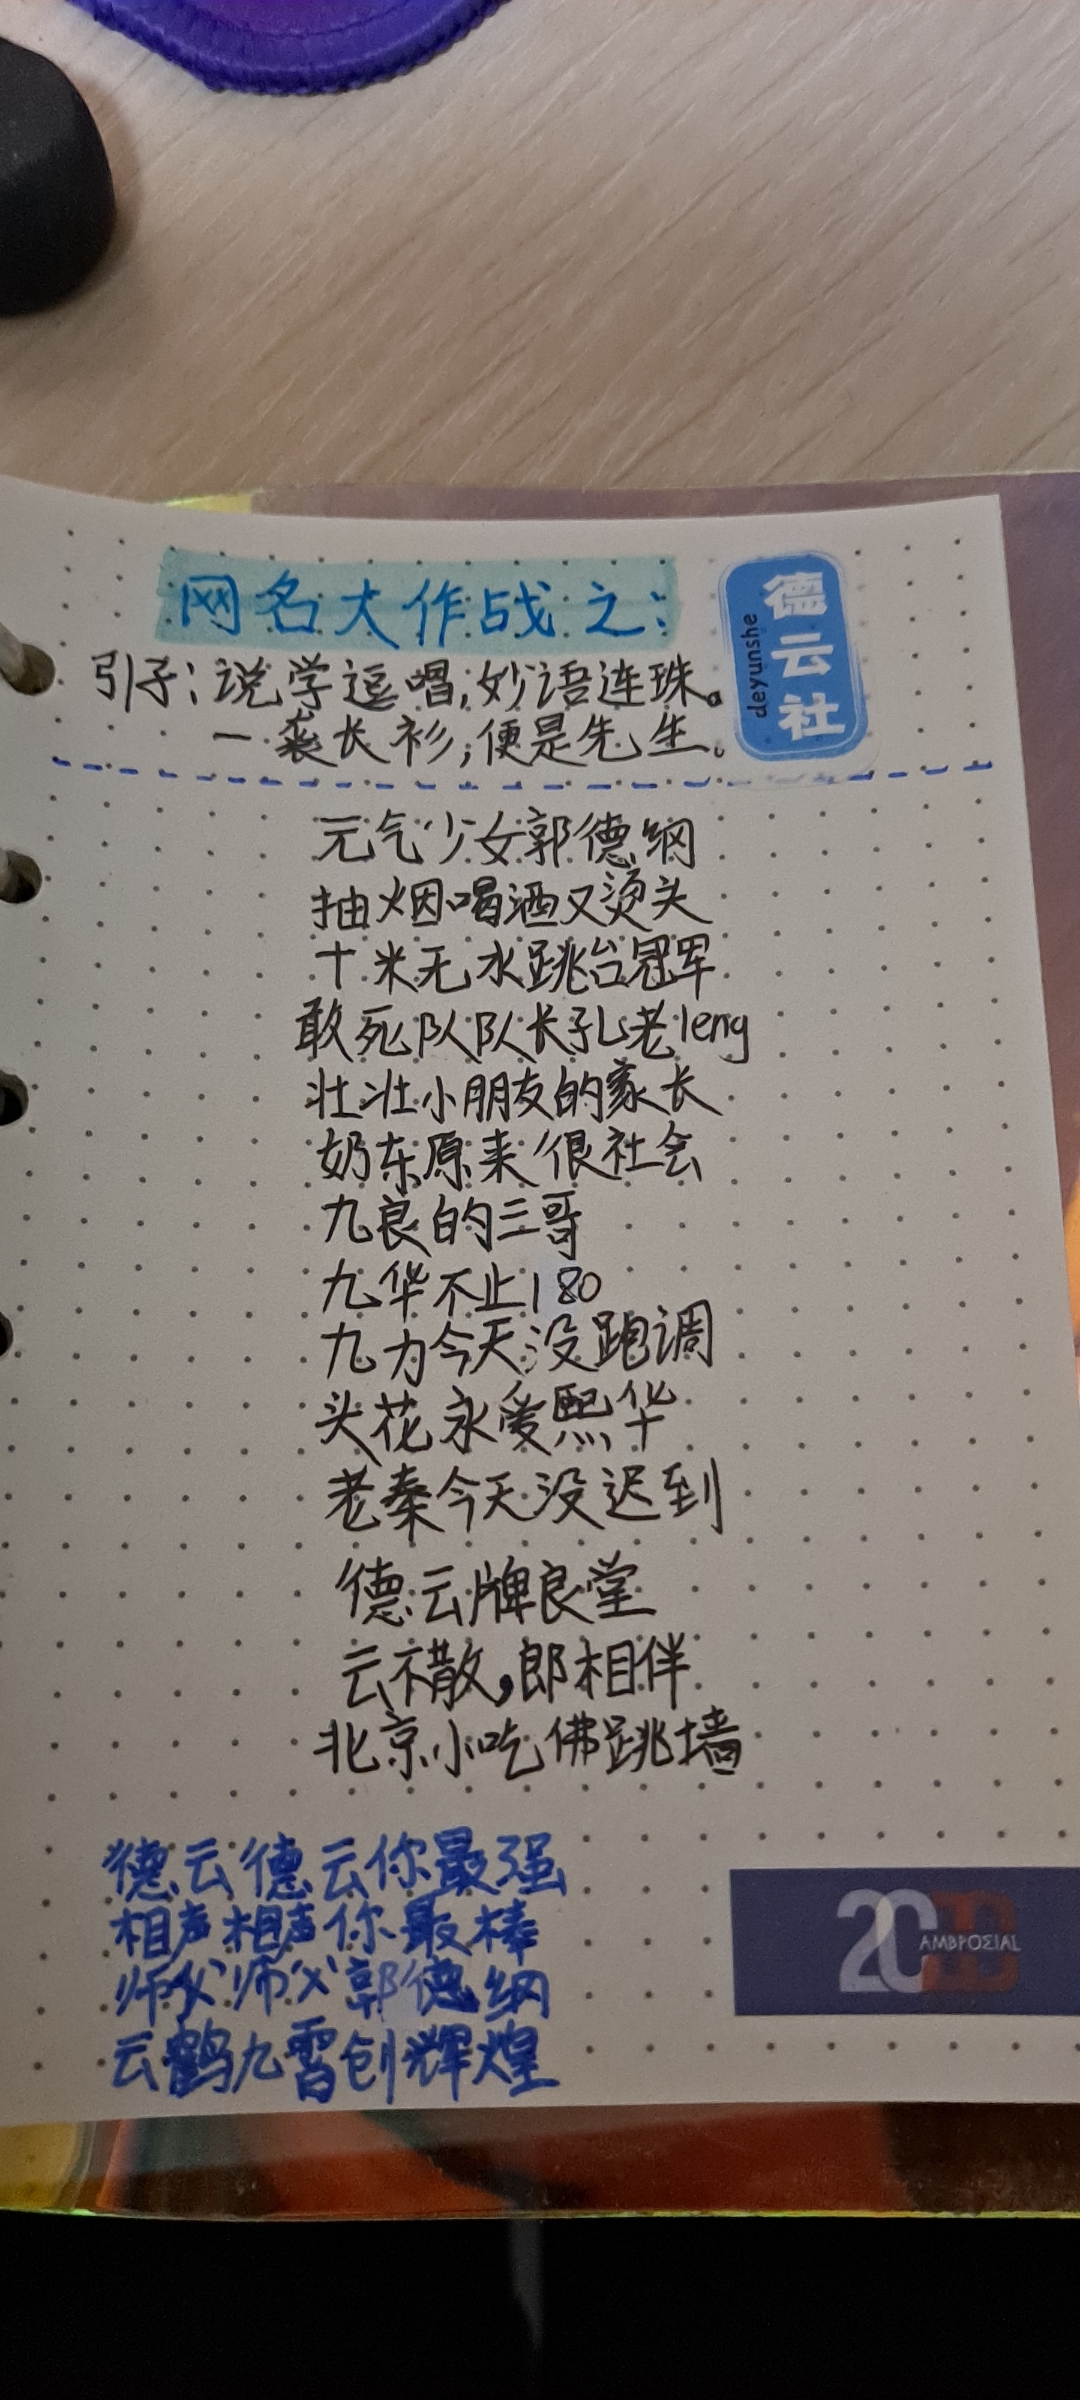 网名大作战之:
德云社
deyunshe
引子:说学逗唱,妙语连珠。
一袭长衫,便是先生。
元气少女郭德纲
抽烟喝酒又烫头
十米无水跳台冠军
敢死队队长孔老leng
壮壮小朋友的家长
奶东原来很社会
九良的三哥
九华不止180
九力今天没跑调
头花永爱熙华
老秦今天没迟到
德云牌良堂
云不散,郎相伴
北京小吃佛跳墙
德云德云你最强
相声相声你最棒
师父师父郭德纲
云鹤九霄创辉煌
20
AMBPOΣIAL